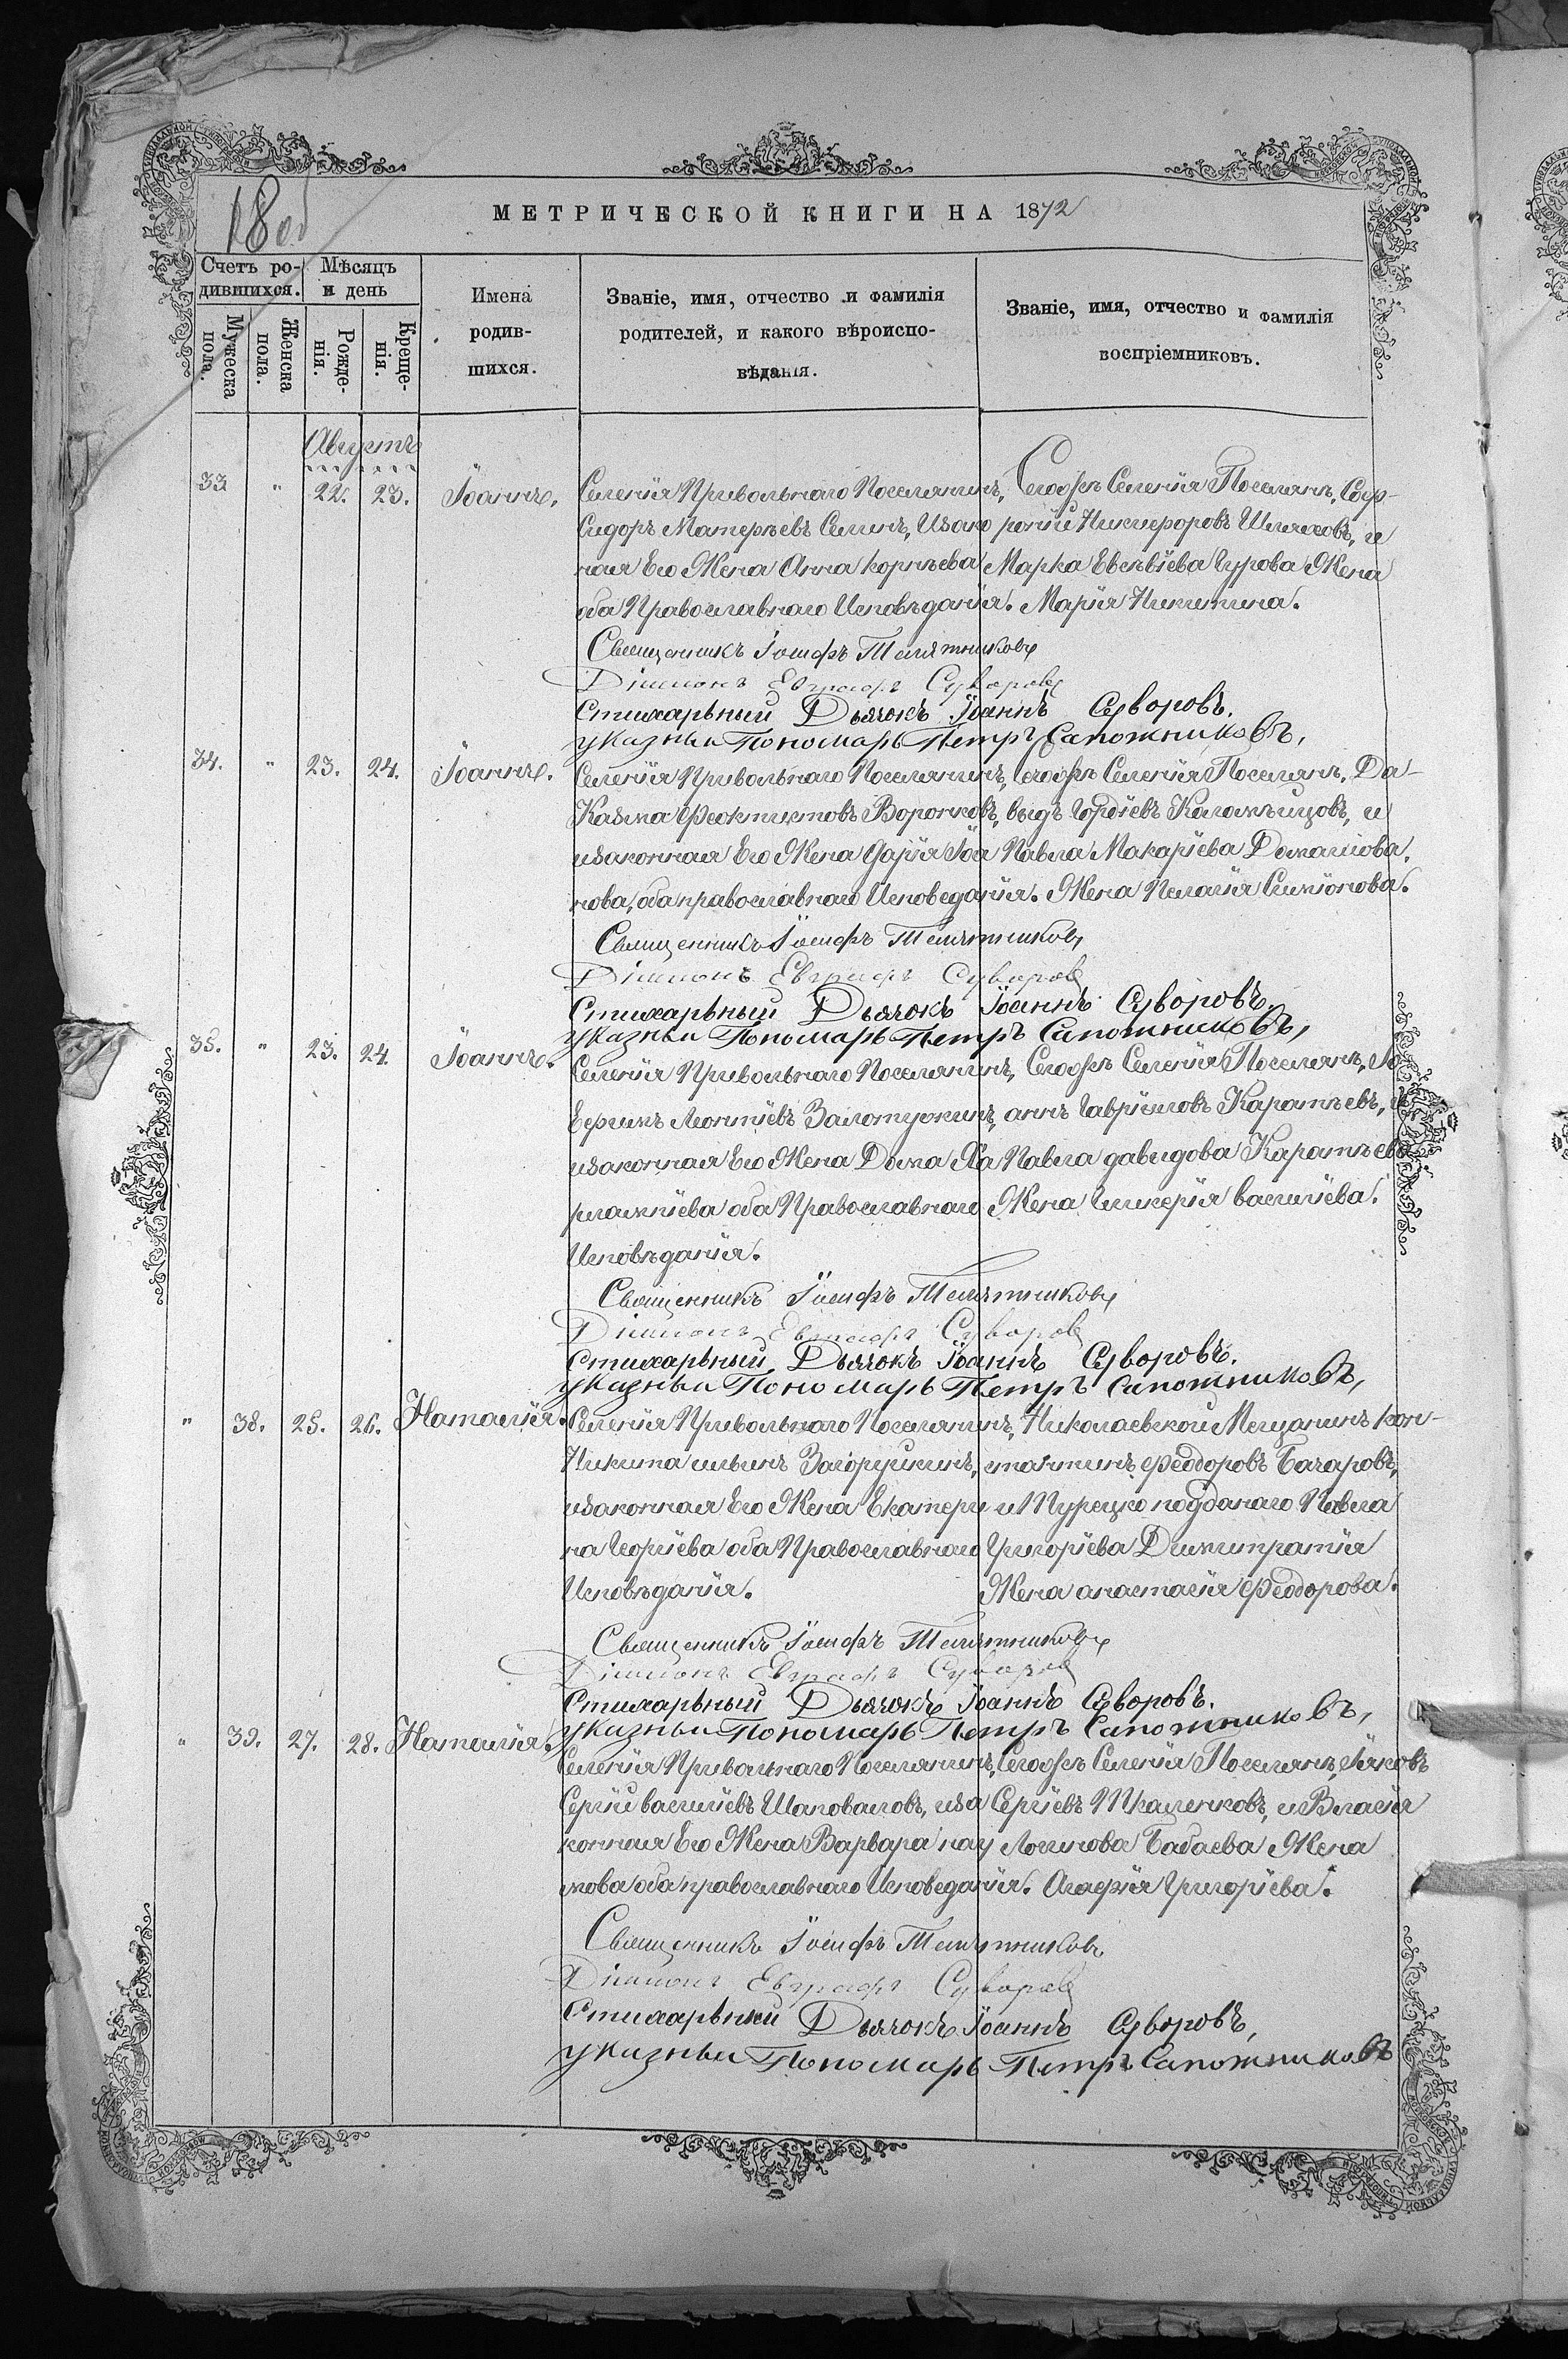 18 об
МЕТРИЧЕСКОЙ КНИГИ НА 1872
Счетъ ро-
дившихся.
Мѣсяцъ
и день
Мужеска
пола.
Женска
пола.
Рожде-
нія.
Креще-
нія.
Имена
родив-
шихся.
Званіе, имя, отчество и фамилія
родителей, и какого вѣроиспо-
вѣданія.
Званіе, имя, отчество и фамилія
воспріемниковъ.
Августъ
33 " 22. 23. Іоаннъ.
Селенія Привольнаго Поселянинъ,
Сидоръ Матвѣевъ Селинъ, Изако
ная Его Жена Анна Корнѣева
оба Православнаго Исповѣданія.
Тогожъ Селенія Поселян. Соф-
роній Никифоровъ Шляховъ, и
Марка Евсѣвіева Гурова Жена
Марія Никитина.
Священникъ Іосифъ Телятниковъ
Діаконъ Евграфъ Суворовъ
Стихарьный Дьячокъ Іоаннъ Суворовъ.
указный Пономарь Петръ Сапожниковъ,
34. " 23. 24. Іоаннъ.
Селенія Привольнаго Поселянинъ,
Казма Феоктистовъ Воронковъ,
изаконная Его Жена Дарія Іоа
нова, оба православнаго Исповеданія.
Тогожъ Селенія Поселян. Да-
выдъ Гордіевъ Каламѣицовъ, и
Павла Макаріева Домашова.
Жена Пелагія Симіонова.
Священникъ Іосифъ Телятниковъ
Діаконъ Евграфъ Суворовъ
Стихарьный Дьячокъ Іоаннъ Суворовъ,
указный Пономарь Петръ Сапожниковъ,
35. " 23. 24. Іоаннъ.
Селенія Привольнаго Поселянинъ,
Леонтіевъ
изаконная Его Жена Дома Ха
рлампіева оба Православнаго
Исповѣданія.
Тогожъ Селенія Поселян. Іо
аннъ Гавріиловъ Каратѣевъ, и
Павла давидова Каратѣева
Жена Гликерія василіева.
Священникъ Іосифъ Телятниковъ
Діаконъ Евграфъ Суворовъ
Стихарьный Дьячокъ Іоаннъ Суворовъ.
указный Пономарь Петръ Сапожниковъ,
" 38. 25. 26. Наталія.
Селенія Привольнаго Поселянинъ,
Никита ильинъ Загорушкинъ,
изаконная Его Жена Екатери
на Георгіева оба Православнаго
Исповѣданія.
Николаевской Мещанинъ Кон-
стантинъ Феодоровъ Бачаровъ,
и Турецко подданаго Павла
Григоріева
Жена анастасія Феодорова.
Священникъ Іосифъ Телятниковъ
Діаконъ Евграфъ Суворовъ
Стихарьный Дьячокъ Іоаннъ Суворовъ.
указный Пономарь Петръ Сапожниковъ,
" 39. 27. 28. Наталія.
Селенія Привольнаго Поселянинъ,
Сергій василіевъ Шаповаловъ, иза
конная Его Жена Варвара пау
лова оба православнаго Исповеданія.
Тогожъ Селенія Поселян. Іяковъ
Сергіевъ Ткаченковъ, и Власія
Логинова Бабаева Жена
Агафія Григоріева.
Священникъ Іосифъ Телятниковъ
Діаконъ Евграфъ Суворовъ
Стихарьный Дьячокъ Іоаннъ Суворовъ,
указный Пономарь Петръ Сапожниковъ